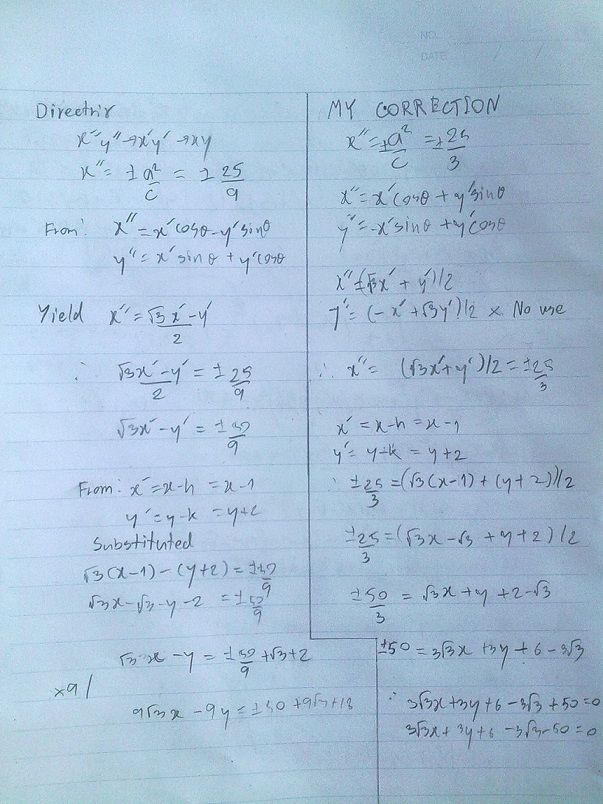 NO.
DATE
Directrix
x″y″→x′y′→xy
x″ = ±a²/c = ±25/9
From: x″ = x′cosθ - y′sinθ
y″ = x′sinθ + y′cosθ
Yield x″ = (√3x′ - y′)/2
∴ (√3x′ - y′)/2 = ±25/9
√3x′ - y′ = ±50/9
From: x′ = x-h = x-1
y′ = y-k = y+2
Substituted
√3(x-1) - (y+2) = ±50/9
√3x - √3 - y - 2 = ±50/9
√3x - y = ±50/9 + √3 + 2
×9/
9√3x - 9y = ±50 + 9√3 + 18
MY CORRECTION
x″ = ±a²/c = ±25/3
x″ = x′cosθ + y′sinθ
y″ = -x′sinθ + y′cosθ
x″ = (√3x′ + y′)/2
y″ = (-x′ + √3y′)/2 × No use
∴ x″ = (√3x′ + y′)/2 = ±25/3
x′ = x-h = x-1
y′ = y-k = y+2
∴ ±25/3 = (√3(x-1) + (y+2))/2
±25/3 = (√3x - √3 + y + 2)/2
±50/3 = √3x + y + 2 - √3
±50 = 3√3x + 3y + 6 - 3√3
∴ 3√3x + 3y + 6 - 3√3 + 50 = 0
3√3x + 3y + 6 - 3√3 - 50 = 0